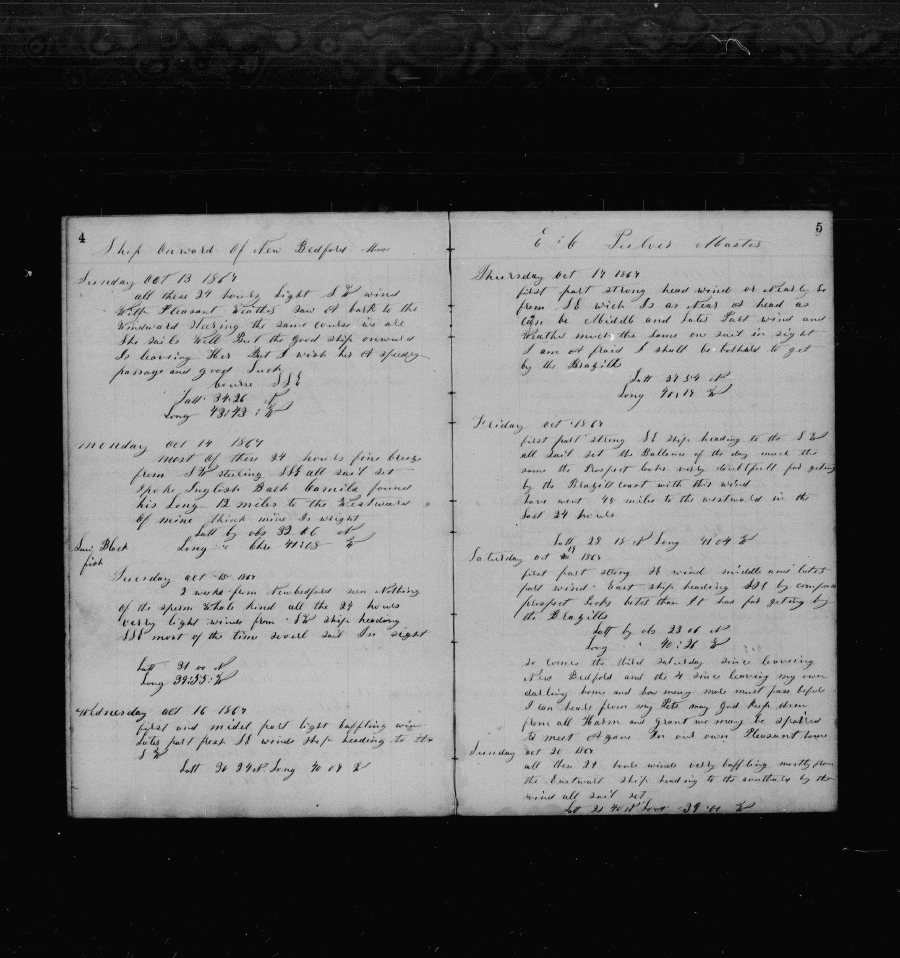 4
Ship Onward Of New Bedford Mass
Sunday Oct 13 1867
all these 24 hours light S W wind
With Pleasant Weather saw A bark to the
Windward Steering the same course we are
She sails Well But the good ship onward
Is leaving Her But I wish her A speedy
passage and good luck
Course SSE
Latt 34.26 N
Long 43:43 : W
Monday Oct 14 1867
most Of these 24 hours fine breeze
from S W steering SSE all sail set
Spoke Inglish Bark Camila found
his Long 12 miles to the Westward
Of mine think mine Is wright
Latt by obs 32 06 N
Long " Chro 41:08 W
Saw Black
fish
Tuesday oct 15 1867
2 weeks from New bedford seen Nothing
of the sperm Whale kind all the 24 hours
verry light winds from S W ship heading
SSE most of the time severl sail In sight
Latt 31 00 N
Long 39:55: W
Wednesday oct 16 1867
first and midel part light baffling win
later part fresh SE winds ship heading to the
S W
Latt 30 24 N Long 40 07 W
5
E : C Pulver Master
Thursday Oct 17 1867
first part strong head wind or Nearly so
from SE wich Is as Near A head as
Can be Middle and later Part wind and
Weather much the Same one sail in sight
I am A fraid I shall be bothard to get
by the Brazills
Latt 29 54 N
Long 40:17 W
Friday Oct 1867
first part strong SE ship heading to the S W
all Sail set the Ballance of the day much the
same the Prospect looks verry doubtfull for geting
by the Brazill coast with this wind
have went 48 miles to the westward in the
last 24 hours
Latt 28 18 N Long 41 04 W
Saturday oct 19 1867
first part strong SE wind middle and later
part wind East ship heading SSE by compass
prospect looks beter than It has for geting by
the Brazills
Latt by obs 23 06 N
Long " 40:26 W
so comes the third saturday since leaveing
New Bedford and the 4 since leaving my own
darling home and how many more must pass before
I can hear from my Pets may God keep them
from all Harm and grant we may be spared
to meet Again In our own Pleasant home
Sunday oct 20 1867
all these 24 hours winds verry baffling mostly from
the Eastward ship heading to the southard by the
wind all sail set
Latt 21 40 N Long 39 :00 W